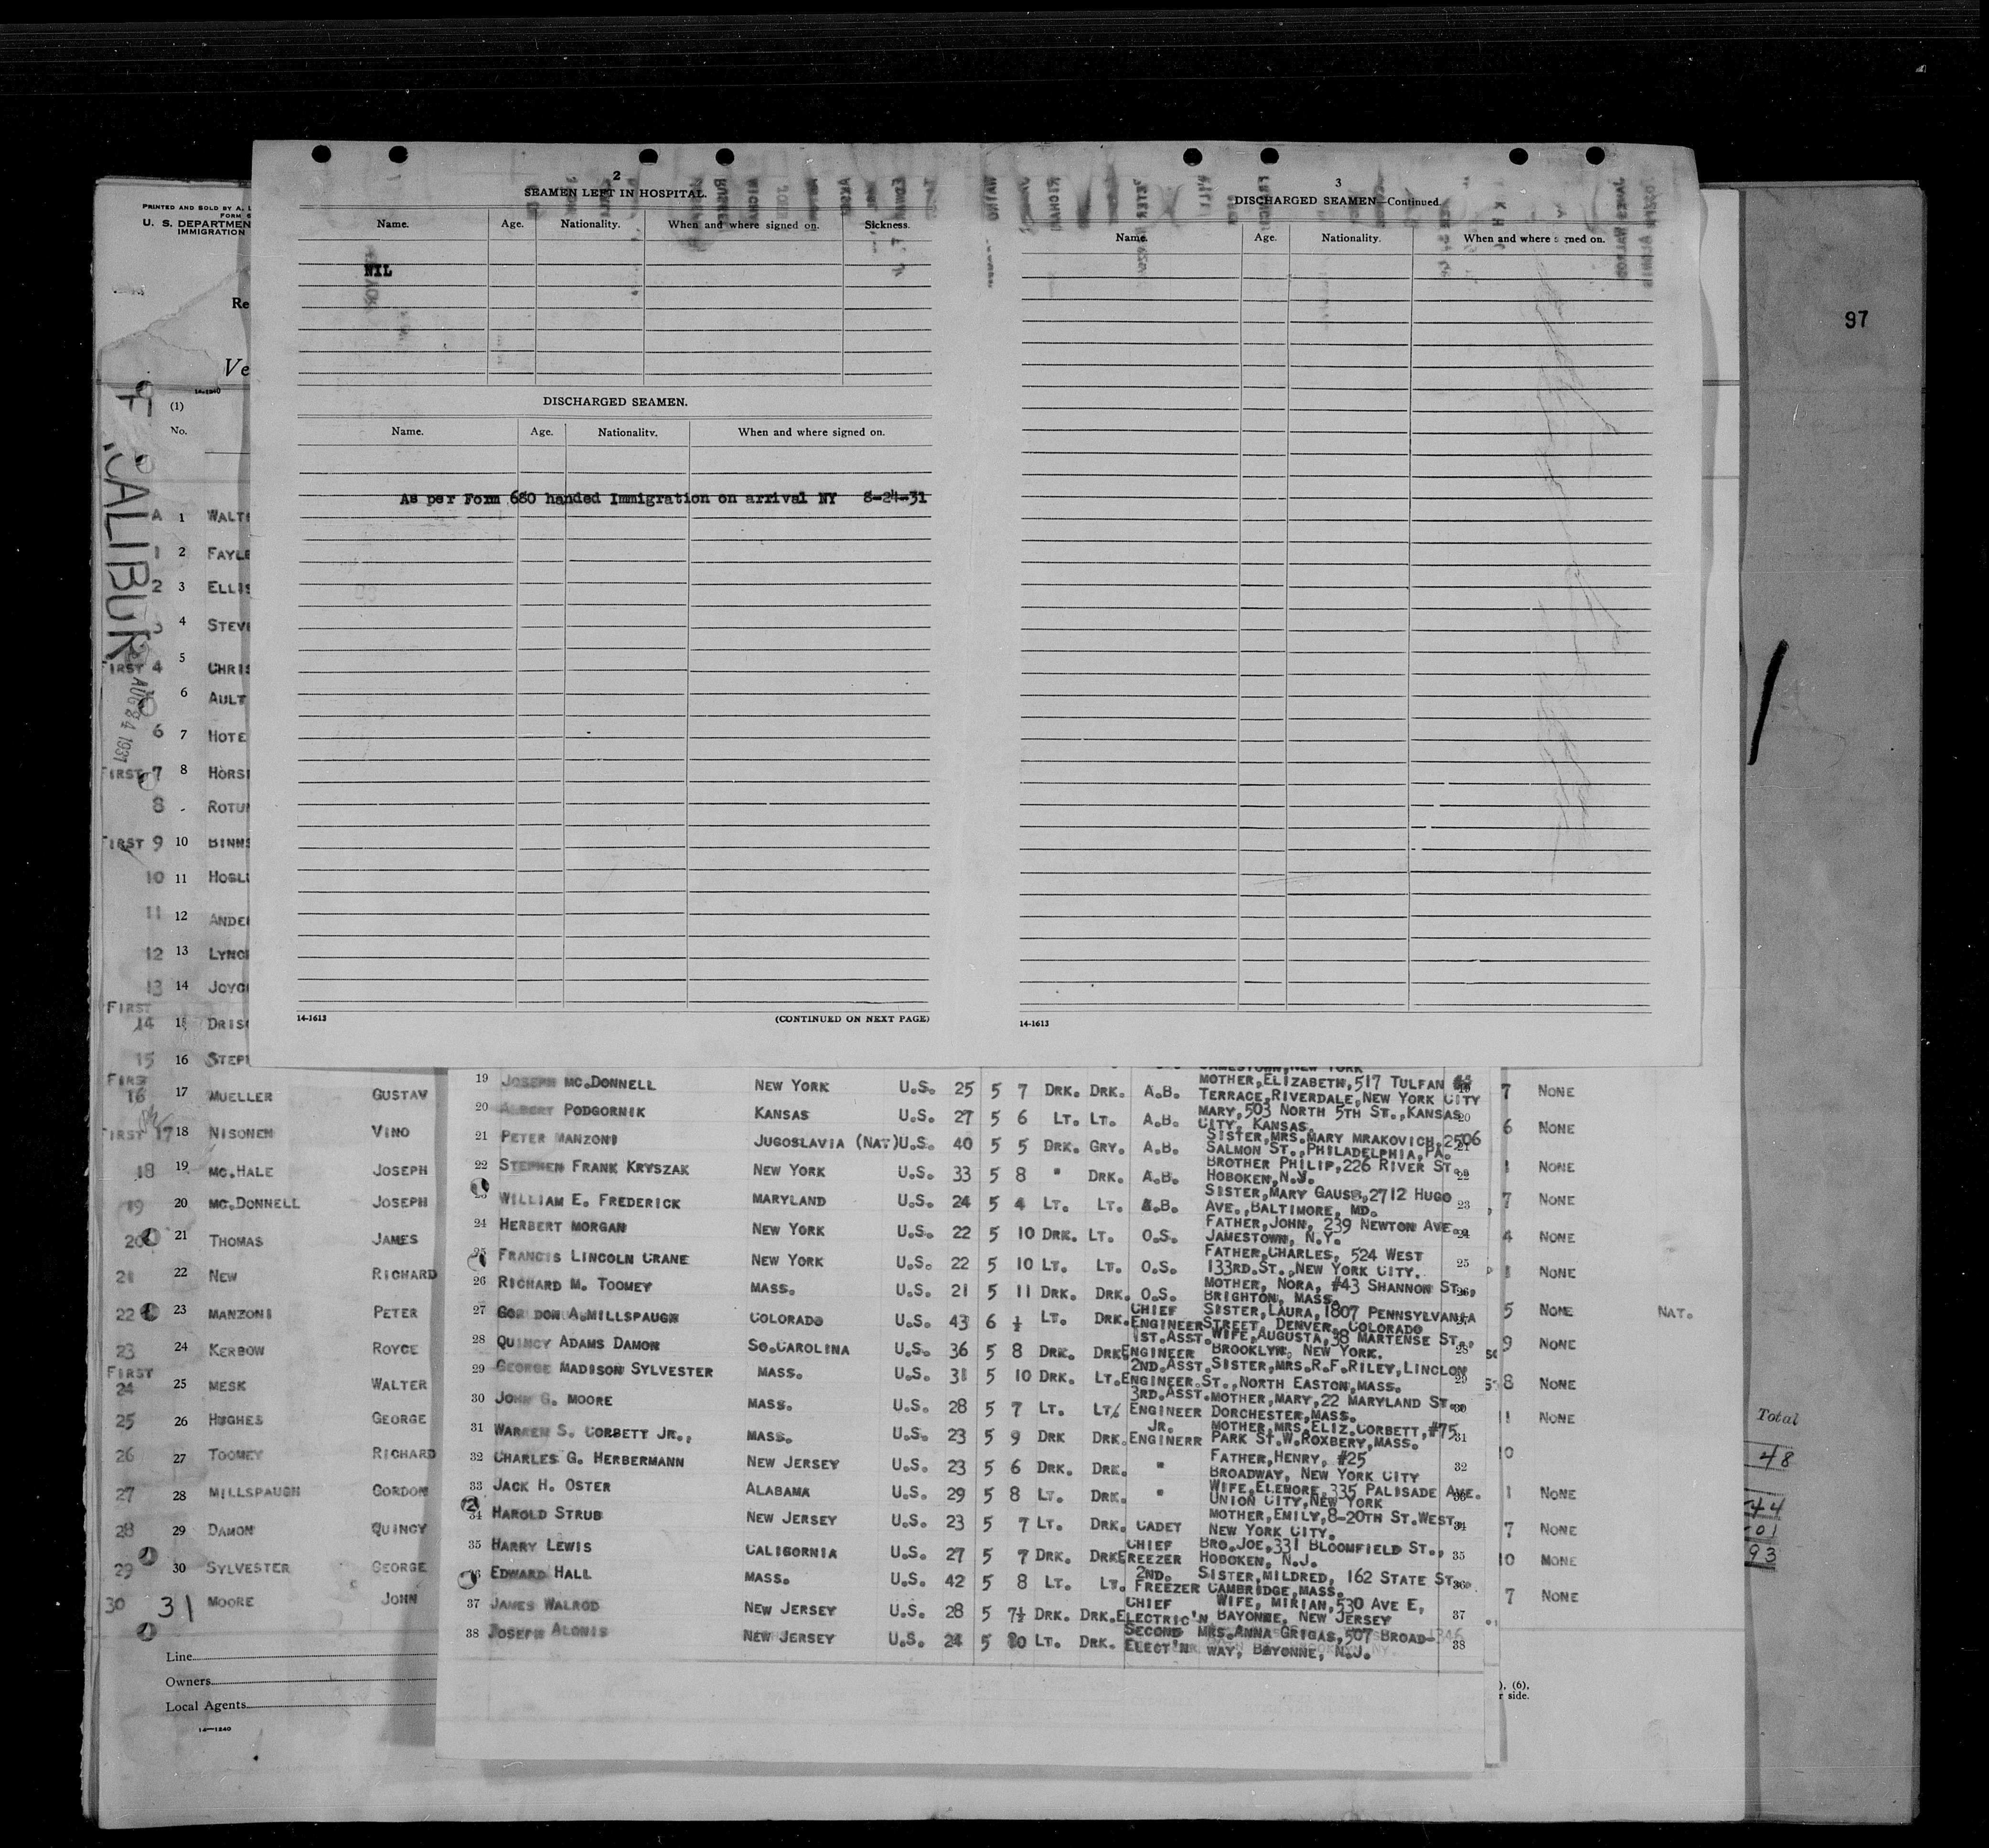 2
SEAMEN LEFT IN HOSPITAL.
Name. Age. Nationality. When and where signed on. Sickness.
NIL
DISCHARGED SEAMEN.
Name. Age. Nationality. When and where signed on.
As per Form 680 handed Immigration on arrival NY 8-24-31
14-1613 (CONTINUED ON NEXT PAGE)
3
DISCHARGED SEAMEN—Continued.
Name. Age. Nationality. When and where signed on.
14-1613
97
PRINTED AND SOLD BY A.
FORM 6
U. S. DEPARTMEN
IMMIGRATION
Re
Ve
14-1240
(1)
No.
CALIBUR
AUG 24 1931
A 1 WALT
1 2 FAYLE
2 3 ELLIS
3 4 STEVE
FIRST 4 5 CHRIS
6 AULT
6 7 HOTE
FIRST 7 8 HORS
8 ROTU
FIRST 9 10 BINNS
10 11 HOGL
11 12 ANDE
12 13 LYNC
13 14 JOYC
FIRST
14 15 DRISC
15 16 STEP
FIRS
16 17 MUELLER GUSTAV
FIRST 17 18 NISONEN VINO
18 19 MC.HALE JOSEPH
19 20 MC.DONNELL JOSEPH
20 21 THOMAS JAMES
21 22 NEW RICHARD
22 23 MANZONI PETER
23 24 KERBOW ROYCE
FIRST
24 25 MESK WALTER
25 26 HUGHES GEORGE
26 27 TOOMEY RICHARD
27 28 MILLSPAUGH GORDON
28 29 DAMON QUINCY
29 30 SYLVESTER GEORGE
30 31 MOORE JOHN
Line
Owners
Local Agents
14-1240
JAMESTOWN, NEW YORK
19 JOSEPH MC.DONNELL NEW YORK U.S. 25 5 7 DRK. DRK. A.B. MOTHER,ELIZABETH,517 TULFAN
TERRACE,RIVERDALE,NEW YORK CITY 19 7 NONE
20 ALBERT PODGORNIK KANSAS U.S. 27 5 6 LT. LT. A.B. MARY,503 NORTH 5TH ST.,KANSAS
CITY, KANSAS. 20 6 NONE
21 PETER MANZONI JUGOSLAVIA (NAT)U.S. 40 5 5 DRK. GRY. A.B. SISTER,MRS.MARY MRAKOVICH,2506
SALMON ST.,PHILADELPHIA,PA. 21
22 STEPHEN FRANK KRYSZAK NEW YORK U.S. 33 5 8 " DRK. A.B. BROTHER PHILIP,226 RIVER ST.,
HOBOKEN,N.J. 22 1 NONE
23 WILLIAM E. FREDERICK MARYLAND U.S. 24 5 4 LT. LT. A.B. SISTER,MARY GAUSS,2712 HUGO
AVE.,BALTIMORE, MD. 23 7 NONE
24 HERBERT MORGAN NEW YORK U.S. 22 5 10 DRK. LT. O.S. FATHER,JOHN, 239 NEWTON AVE.,
JAMESTOWN, N.Y. 24 4 NONE
25 FRANCIS LINCOLN CRANE NEW YORK U.S. 22 5 10 LT. LT. O.S. FATHER,CHARLES, 524 WEST
133RD.ST.,NEW YORK CITY. 25 1 NONE
26 RICHARD M. TOOMEY MASS. U.S. 21 5 11 DRK. DRK. O.S. MOTHER, NORA, #43 SHANNON ST.,
BRIGHTON, MASS. 26
27 GORDON A.MILLSPAUGH COLORADO U.S. 43 6 ½ LT. DRK. CHIEF ENGINEER SISTER, LAURA, 1807 PENNSYLVANIA
STREET, DENVER, COLORADO 27 5 NONE NAT.
28 QUINCY ADAMS DAMON SO.CAROLINA U.S. 36 5 8 DRK. DRK 1ST.ASST. ENGINEER WIFE,AUGUSTA,38 MARTENSE ST.,
BROOKLYN, NEW YORK. 28 9 NONE
29 GEORGE MADISON SYLVESTER MASS. U.S. 31 5 10 DRK. LT. 2ND.ASST. ENGINEER SISTER,MRS.R.F.RILEY,LINCLON
ST.,NORTH EASTON,MASS. 29 8 NONE
30 JOHN G. MOORE MASS. U.S. 28 5 7 LT. LT/ 3RD.ASST. ENGINEER MOTHER,MARY,22 MARYLAND ST.,
DORCHESTER,MASS. 30 1 NONE
31 WARREN S. CORBETT JR., MASS. U.S. 23 5 9 DRK DRK. JR. ENGINERR MOTHER,MRS.ELIZ.CORBETT,#75
PARK ST.W.ROXBERY,MASS. 31 10
32 CHARLES G. HERBERMANN NEW JERSEY U.S. 23 5 6 DRK. DRK. " FATHER,HENRY, #25
BROADWAY, NEW YORK CITY 32
33 JACK H. OSTER ALABAMA U.S. 29 5 8 LT. DRK. " WIFE,ELENORE,335 PALISADE AVE.
UNION CITY,NEW YORK 33 1 NONE
34 HAROLD STRUB NEW JERSEY U.S. 23 5 7 LT. DRK. CADET MOTHER,EMILY,8-20TH ST.WEST,
NEW YORK CITY. 34 7 NONE
35 HARRY LEWIS CALIGORNIA U.S. 27 5 7 DRK. DRK CHIEF FREEZER BRO.JOE,331 BLOOMFIELD ST.,
HOBOKEN, N.J. 35 10 MONE
36 EDWARD HALL MASS. U.S. 42 5 8 LT. LT. 2ND. FREEZER SISTER,MILDRED, 162 STATE ST.
CAMBRIDGE,MASS. 36 7 NONE
37 JAMES WALROD NEW JERSEY U.S. 28 5 7½ DRK. DRK. CHIEF ELECTRIC'N WIFE, MIRIAN,530 AVE E,
BAYONNE, NEW JERSEY 37
38 JOSEPH ALONIS NEW JERSEY U.S. 24 5 10 LT. DRK. SECOND ELECT'N MRS.ANNA GRIGAS,507 BROAD-
WAY, BAYONNE, N.J. 38
), (6),
r side.
Total
48
44
01
93